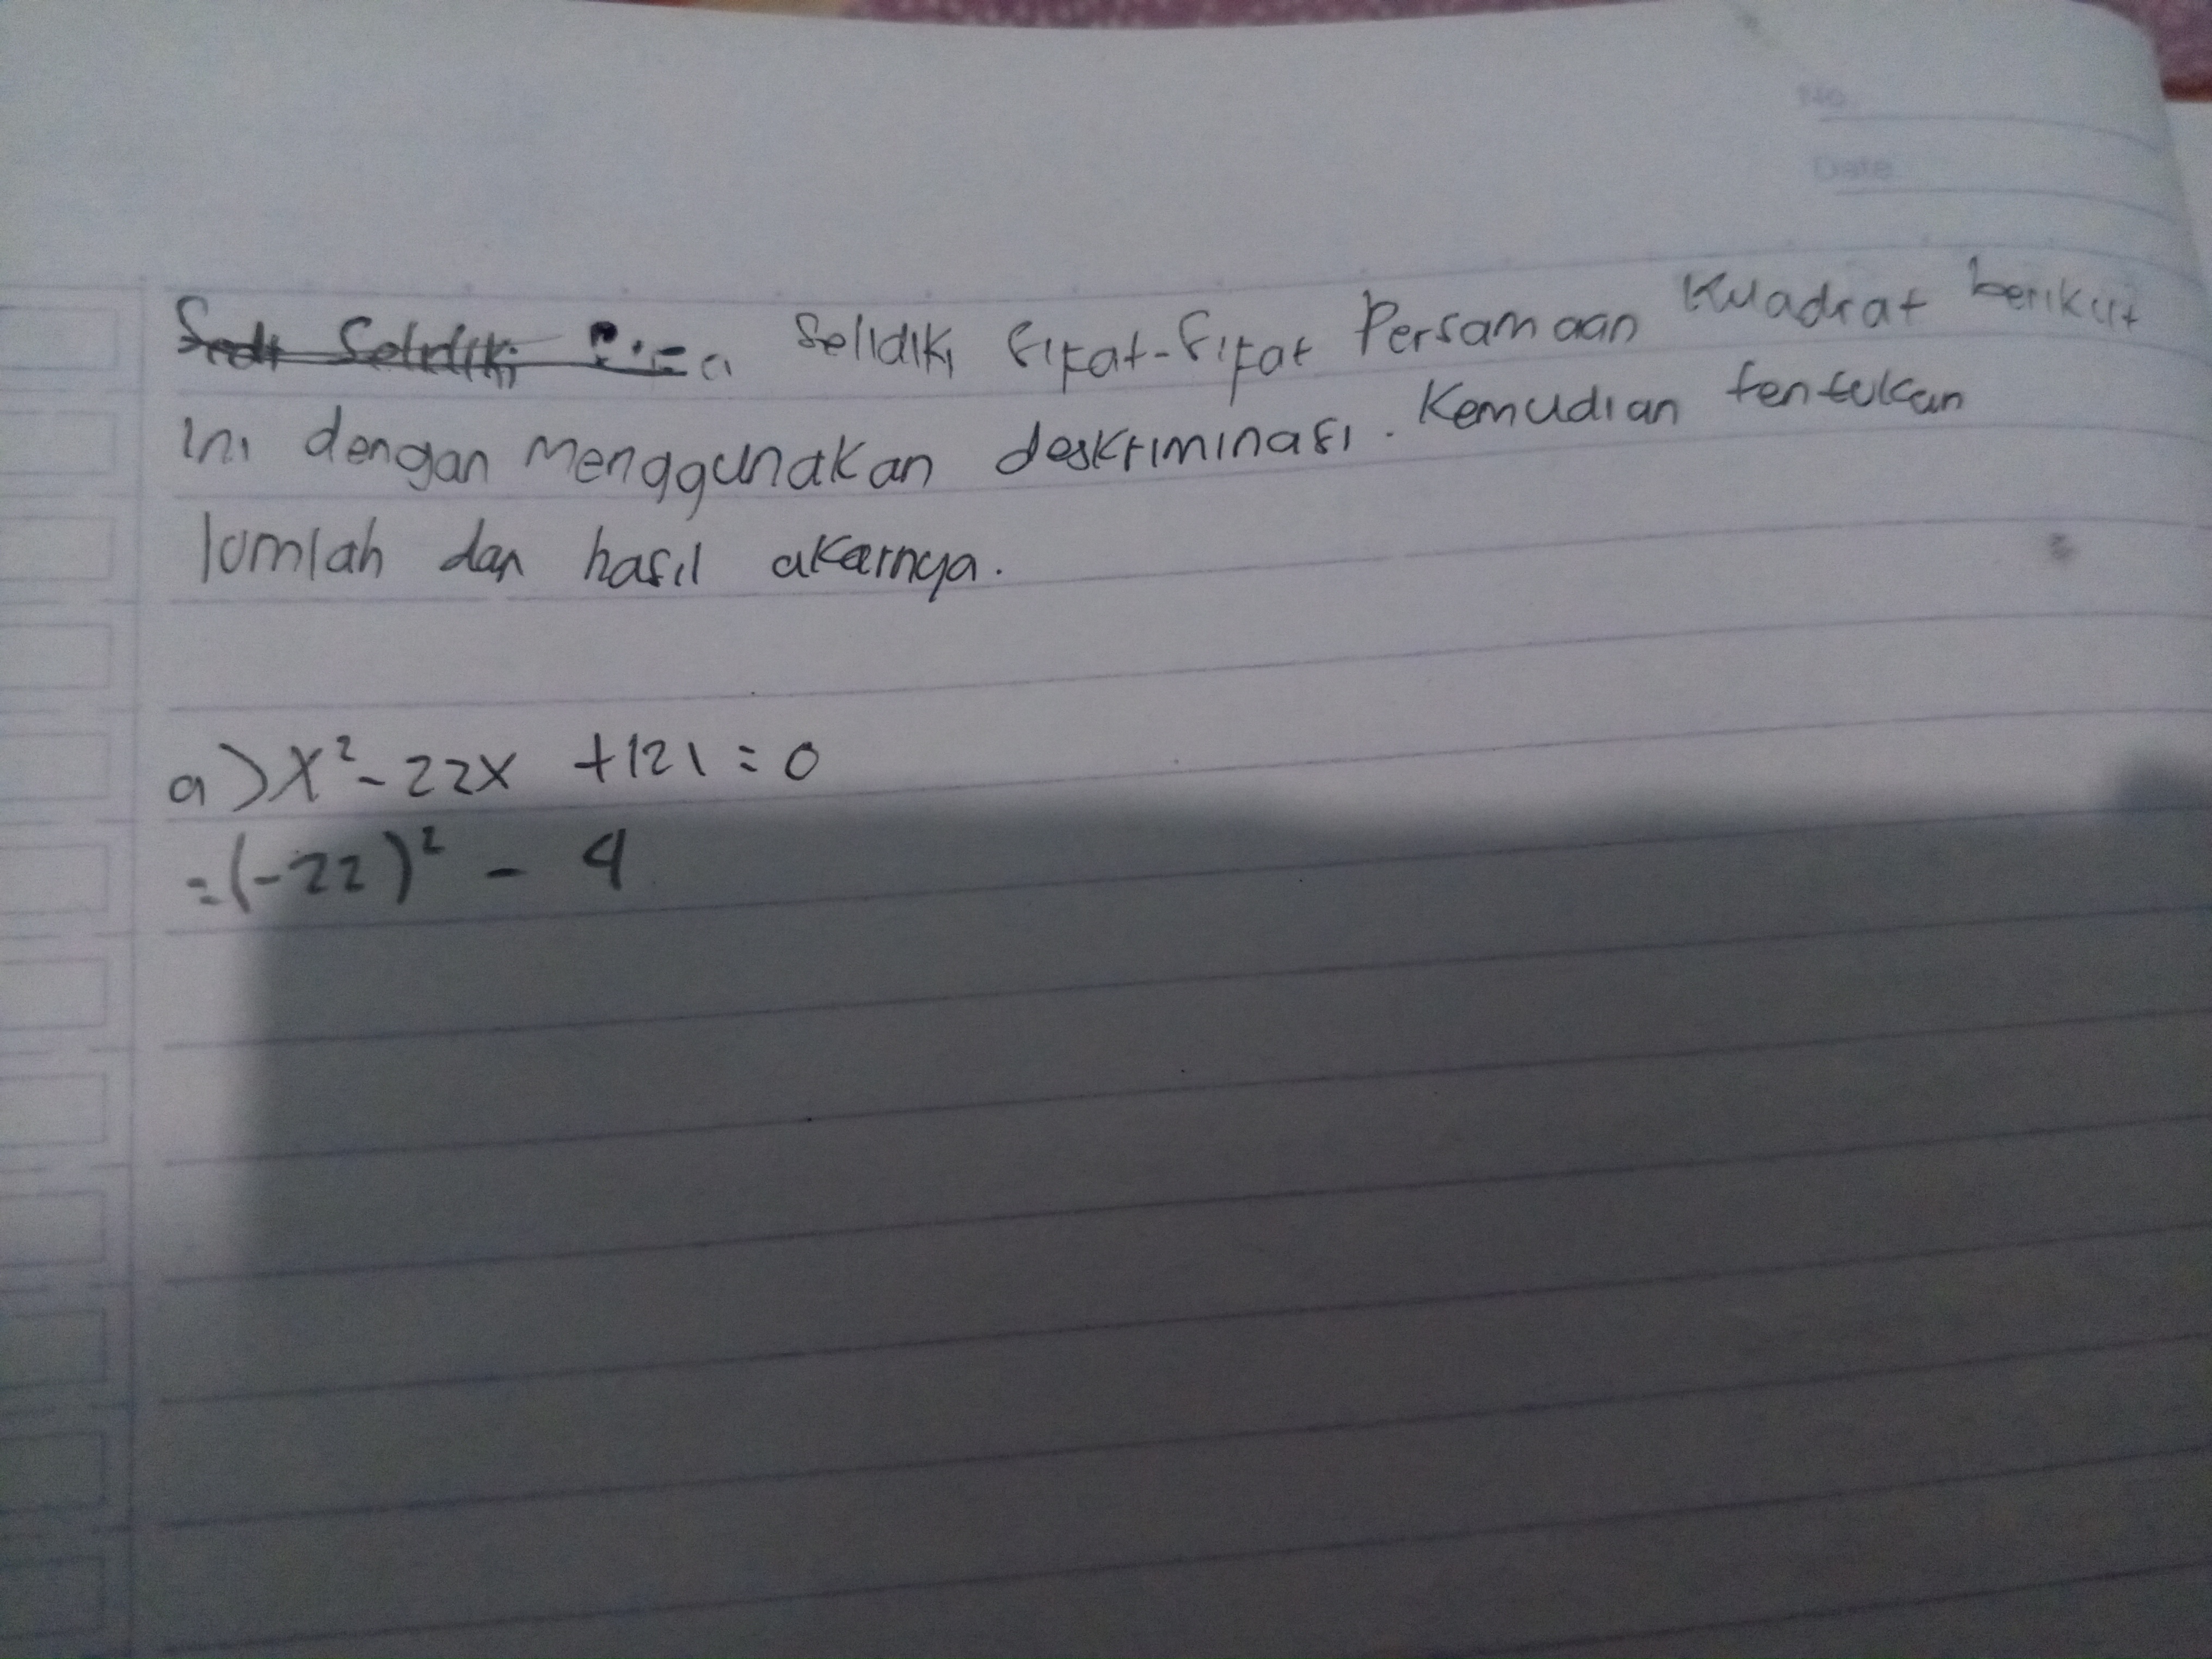 No.
Date
Selidiki sifat-sifat Persamaan Kuadrat berikut
ini dengan menggunakan deskriminasi. Kemudian tentukan
Jumlah dan hasil akarnya.
a) x² - 22x + 121 = 0
= (-22)² - 4